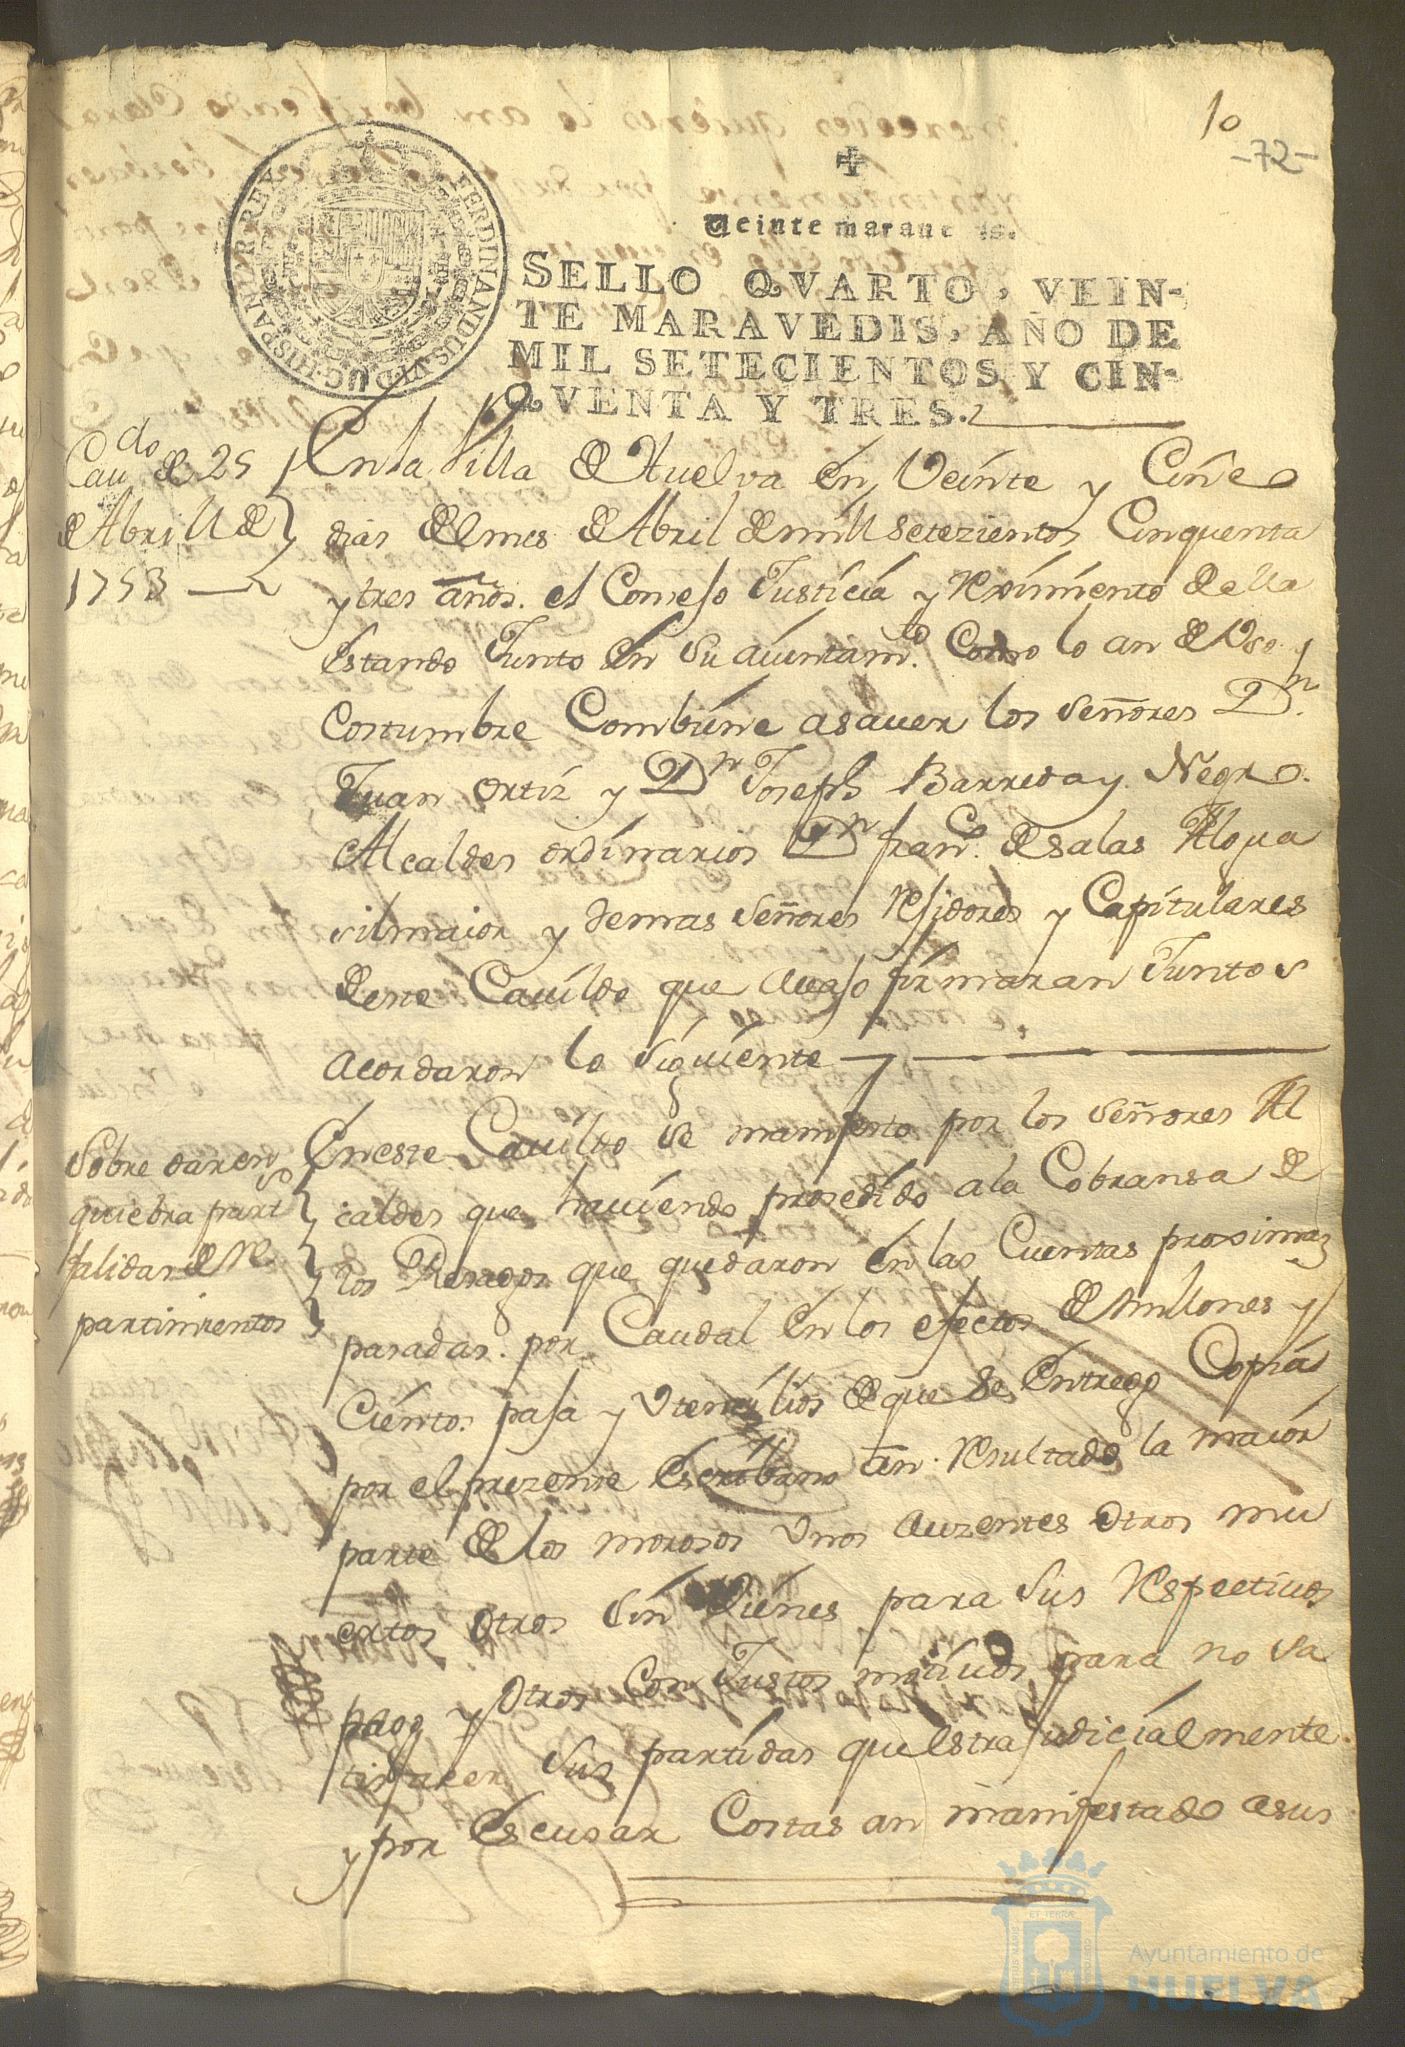 10
-72-
Veinte maravedis.
SELLO QVARTO, VEIN-
TE MARAVEDIS, AÑO DE
MIL SETECIENTOS Y CIN-
QVENTA Y TRES.
FERDINANDUS VI D G HISPANIAR REX
Cau.do de 25
de Abrill de
1753
En la Villa de Huelva en Veinte y Cinco
dias del mes de Abril de mill setezientos Cinquenta
y tres años. el Consejo Justicia y Reximiento della
Estando Junto en su aiuntam.to Como lo an de Vso y
Costumbre Combiene asauer los señores D.n
Juan Ortiz y D.n Joseph Barreda y Negro.
Alcaldes ordinarios D.n fran.co de salas Algua
silmaior y demas señores Residores y Capitulares
deste Cauildo que auajo firmaran Juntos
acordaron lo siguiente
Sobre dar en
quiebra part.so
falidas de Re
partimientos
En este Cauildo se manifesto por los señores Al
caldes que hauiendo prosedido a la Cobransa de
los Resagos que quedaron en las Cuentas proximas
pasadas. por Caudal en los efectos de millones y
Cientos. paja y Utensilios de que se Entrego Copia
por el prezente Escribano an Resultado la maior
parte de los morosos Unos auzentes Otros mu
ertos Otros sin Vienes para sus Respectiuos
pagos y Otros Con Justos motiuos para no sa
tisfacer sus partidas que Estrajudicialmente
y por Escusar Costas an manifestado a sus
Ayuntamiento de
HUELVA